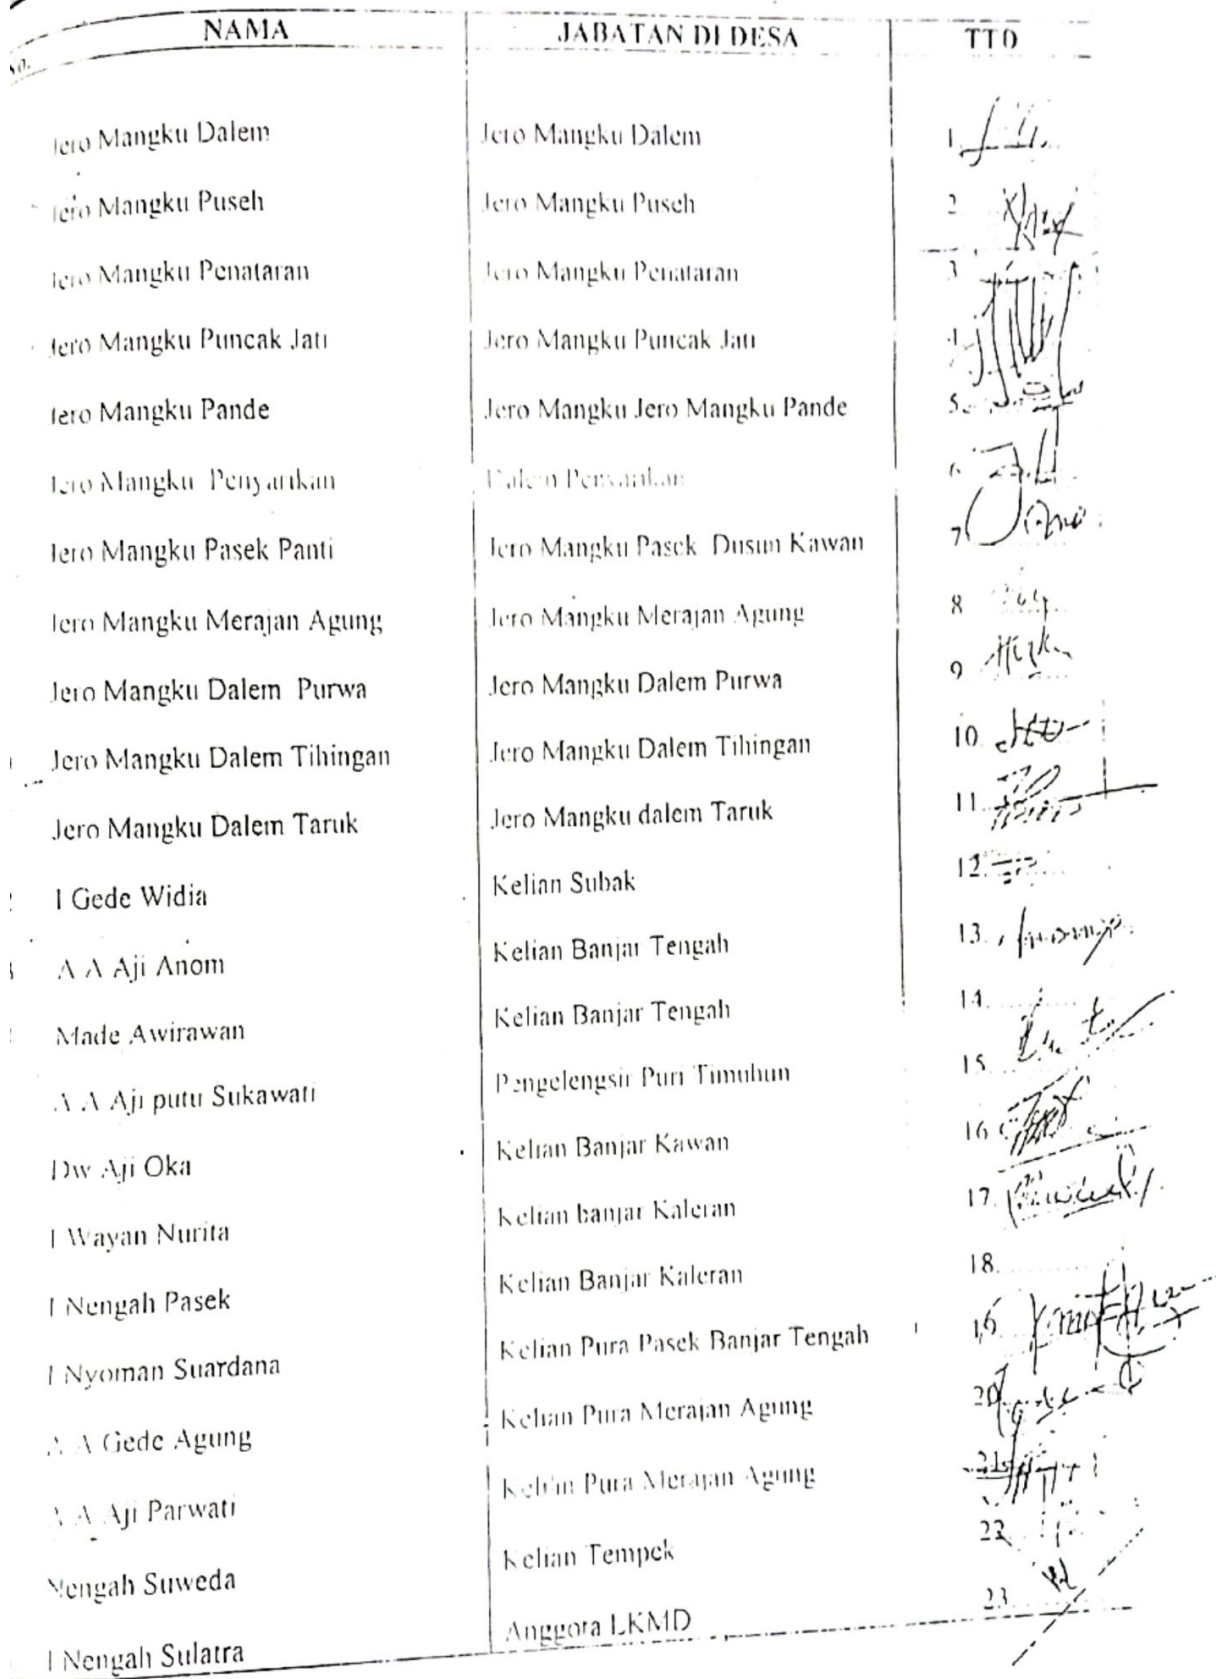 No. NAMA JABATAN DI DESA TTD
Jero Mangku Dalem Jero Mangku Dalem 1
Jero Mangku Puseh Jero Mangku Puseh 2
Jero Mangku Penataran Jero Mangku Penataran 3
Jero Mangku Puncak Jati Jero Mangku Puncak Jati 4
Jero Mangku Pande Jero Mangku Jero Mangku Pande 5.
Jero Mangku Penyarikan Dalem Penyarikan 6
Jero Mangku Pasek Panti Jero Mangku Pasek Dusun Kawan 7
Jero Mangku Merajan Agung Jero Mangku Merajan Agung 8
Jero Mangku Dalem Purwa Jero Mangku Dalem Purwa 9
Jero Mangku Dalem Tihingan Jero Mangku Dalem Tihingan 10.
Jero Mangku Dalem Taruk Jero Mangku dalem Taruk 11.
I Gede Widia Kelian Subak 12.
A A Aji Anom Kelian Banjar Tengah 13.
Made Awirawan Kelian Banjar Tengah 14.
A A Aji putu Sukawati Pengelengsir Puri Timuhun 15.
Dw Aji Oka Kelian Banjar Kawan 16
I Wayan Nurita Kelian banjar Kaleran 17.
I Nengah Pasek Kelian Banjar Kaleran 18.
I Nyoman Suardana Kelian Pura Pasek Banjar Tengah
A A Gede Agung Kelian Pura Merajan Agung 20
A A Aji Parwati Kelian Pura Merajan Agung 21
Nengah Suweda Kelian Tempek 22
I Nengah Sulatra Anggota LKMD 23